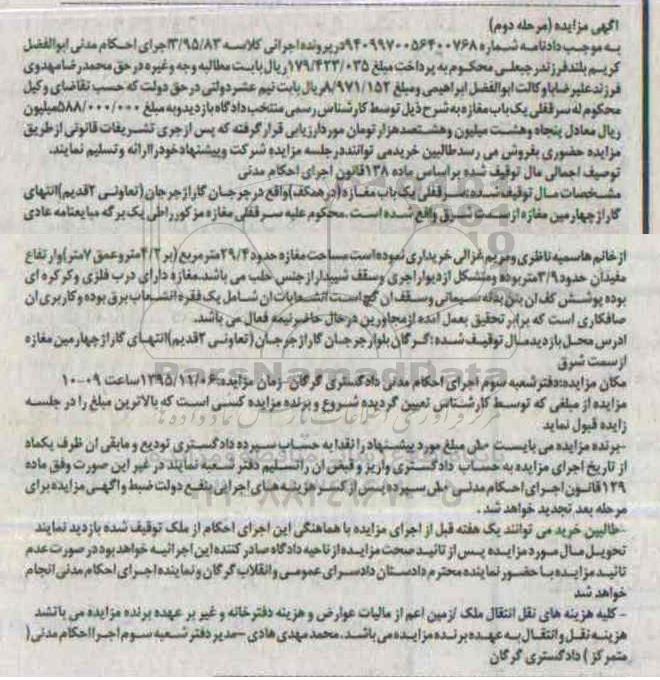 آگهی مزایده (مرحله دوم)
به موجب دادنامه شماره 9409970056400768 در پرونده اجرائی کلاسه 3/95/83 اجرای احکام مدنی ابوالفضل
کریم بلند فرزند رجبعلی محکوم به پرداخت مبلغ 179/423/035 ریال بابت مطالبه وجه و غیره در حق محمدرضا مهدوی
فرزند علیرضا با وکالت ابوالفضل ابراهیمی و مبلغ 8/971/152 ریال بابت نیم عشر دولتی در حق دولت که حسب تقاضای وکیل
محکوم له سرقفلی یک باب مغازه به شرح ذیل توسط کارشناس رسمی منتخب دادگاه بازدید و به مبلغ 588/000/000 میلیون
ریال معادل پنجاه و هشت میلیون و هشتصد هزار تومان مورد ارزیابی قرار گرفته که پس از جری تشریفات قانونی از طریق
مزایده حضوری بفروش می رسد طالبین خرید می توانند در جلسه مزایده شرکت و پیشنهاد خود را ارائه و تسلیم نمایند.
توصیف اجمالی مال توقیف شده بر اساس ماده 138 قانون اجرای احکام مدنی
مشخصات مال توقیف شده: سرقفلی یک باب مغازه (در همکف) واقع در جرجان گاراژ جرجان (تعاونی 2 قدیم) انتهای
گاراژ چهارمین مغازه از سمت شرق واقع شده است. محکوم علیه سرقفلی مغازه مزکور را طی یک برگه مبایعنامه عادی
از خانم هاسمیه ناظری و مریم غزالی خریداری نموده است مساحت مغازه حدود 29/4 متر مربع (بر 4/2 متر و عمق 7 متر) و ارتفاع
مفیدان حدود 3/9 متر بوده و متشکل از دیوار اجری و سقف شیبدار از جنس حلب می باشد. مغازه دارای درب فلزی و کرکره ای
بوده پوشش کف ان بتن بدنه سیمانی و سقف ان گچ است انشعابات ان شامل یک فقره انشعاب برق بوده و کاربری ان
صافکاری است که برابر تحقیق بعمل آمده از مجاورین در حال حاضر نیمه فعال می باشد.
ادرس محل بازدید مال توقیف شده: گرگان بلوار جرجان گاراژ جرجان (تعاونی 2 قدیم) انتهای گاراژ چهارمین مغازه
از سمت شرق
مکان مزایده: دفتر شعبه سوم اجرای احکام مدنی دادگستری گرگان - زمان مزایده: 1395/11/06 ساعت 09-10
مزایده از مبلغی که توسط کارشناس تعیین گردیده شروع و برنده مزایده کسی است که بالاترین مبلغ را در جلسه
زایده قبول نماید
-برنده مزایده می بایست مبلغ مورد پیشنهاد را نقدا به حساب سپرده دادگستری تودیع و مابقی ان ظرف یکماه
از تاریخ اجرای مزایده به حساب دادگستری واریز و قبض ان را تسلیم دفتر شعبه نمایند در غیر این صورت وفق ماده
129 قانون اجرای احکام مدنی سپرده پس از کسر هزینه های اجرایی بنفع دولت ضبط و اگهی مزایده برای
مرحله بعد تجدید خواهد شد.
-طالبین خرید می توانند یک هفته قبل از اجرای مزایده با هماهنگی این اجرای احکام از ملک توقیف شده بازدید نمایند
تحویل مال مورد مزایده پس از تائید صحت مزایده از ناحیه دادگاه صادر کننده این اجرائیه خواهد بود در صورت عدم
تائید مزایده با حضور نماینده محترم دادستان دادسرای عمومی و انقلاب گرگان و نماینده اجرای احکام مدنی انجام
خواهد شد
- کلیه هزینه های نقل انتقال ملک ازمین اعم از مالیات عوارض و هزینه دفترخانه و غیر بر عهده برنده مزایده می باتشد
هزینه نقل و انتقال به عهده برنده مزایده می باشد. محمد مهدی هادی - مدیر دفتر شعبه سوم اجرا احکام مدنی (
متمرکز) دادگستری گرگان
ParsNamadData